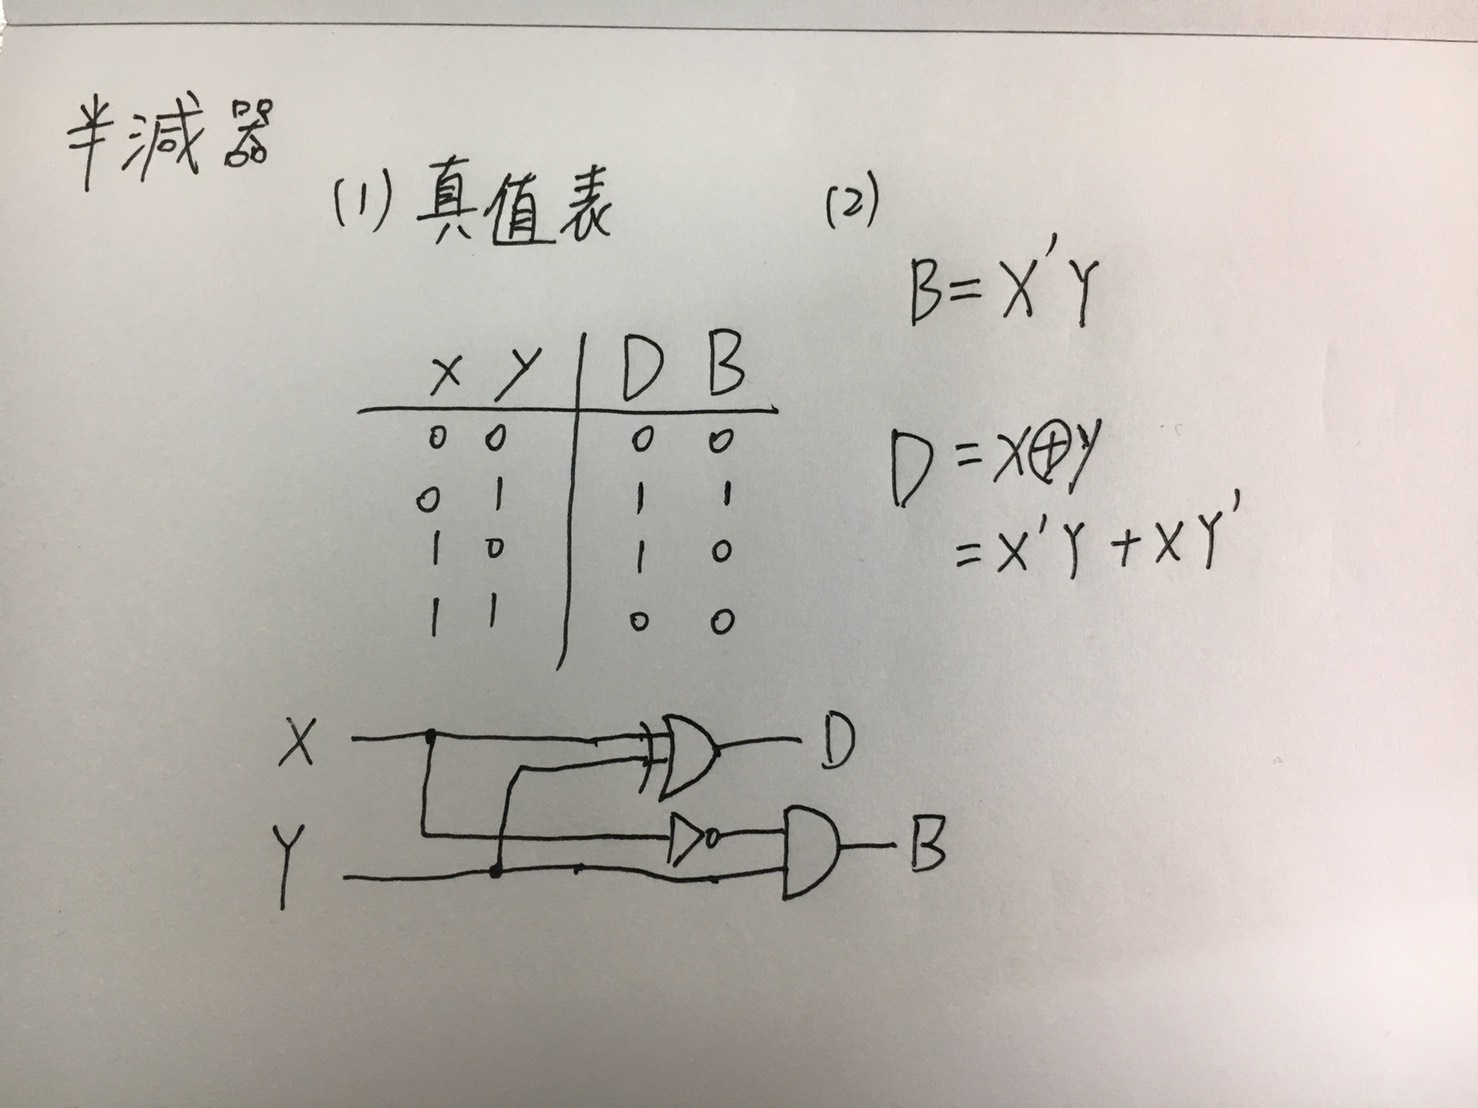 半減器
(1) 真值表
X Y D B
0 0 0 0
0 1 1 1
1 0 1 0
1 1 0 0
(2)
B = X'Y
D = X⊕Y
= X'Y + XY'
X D
Y B